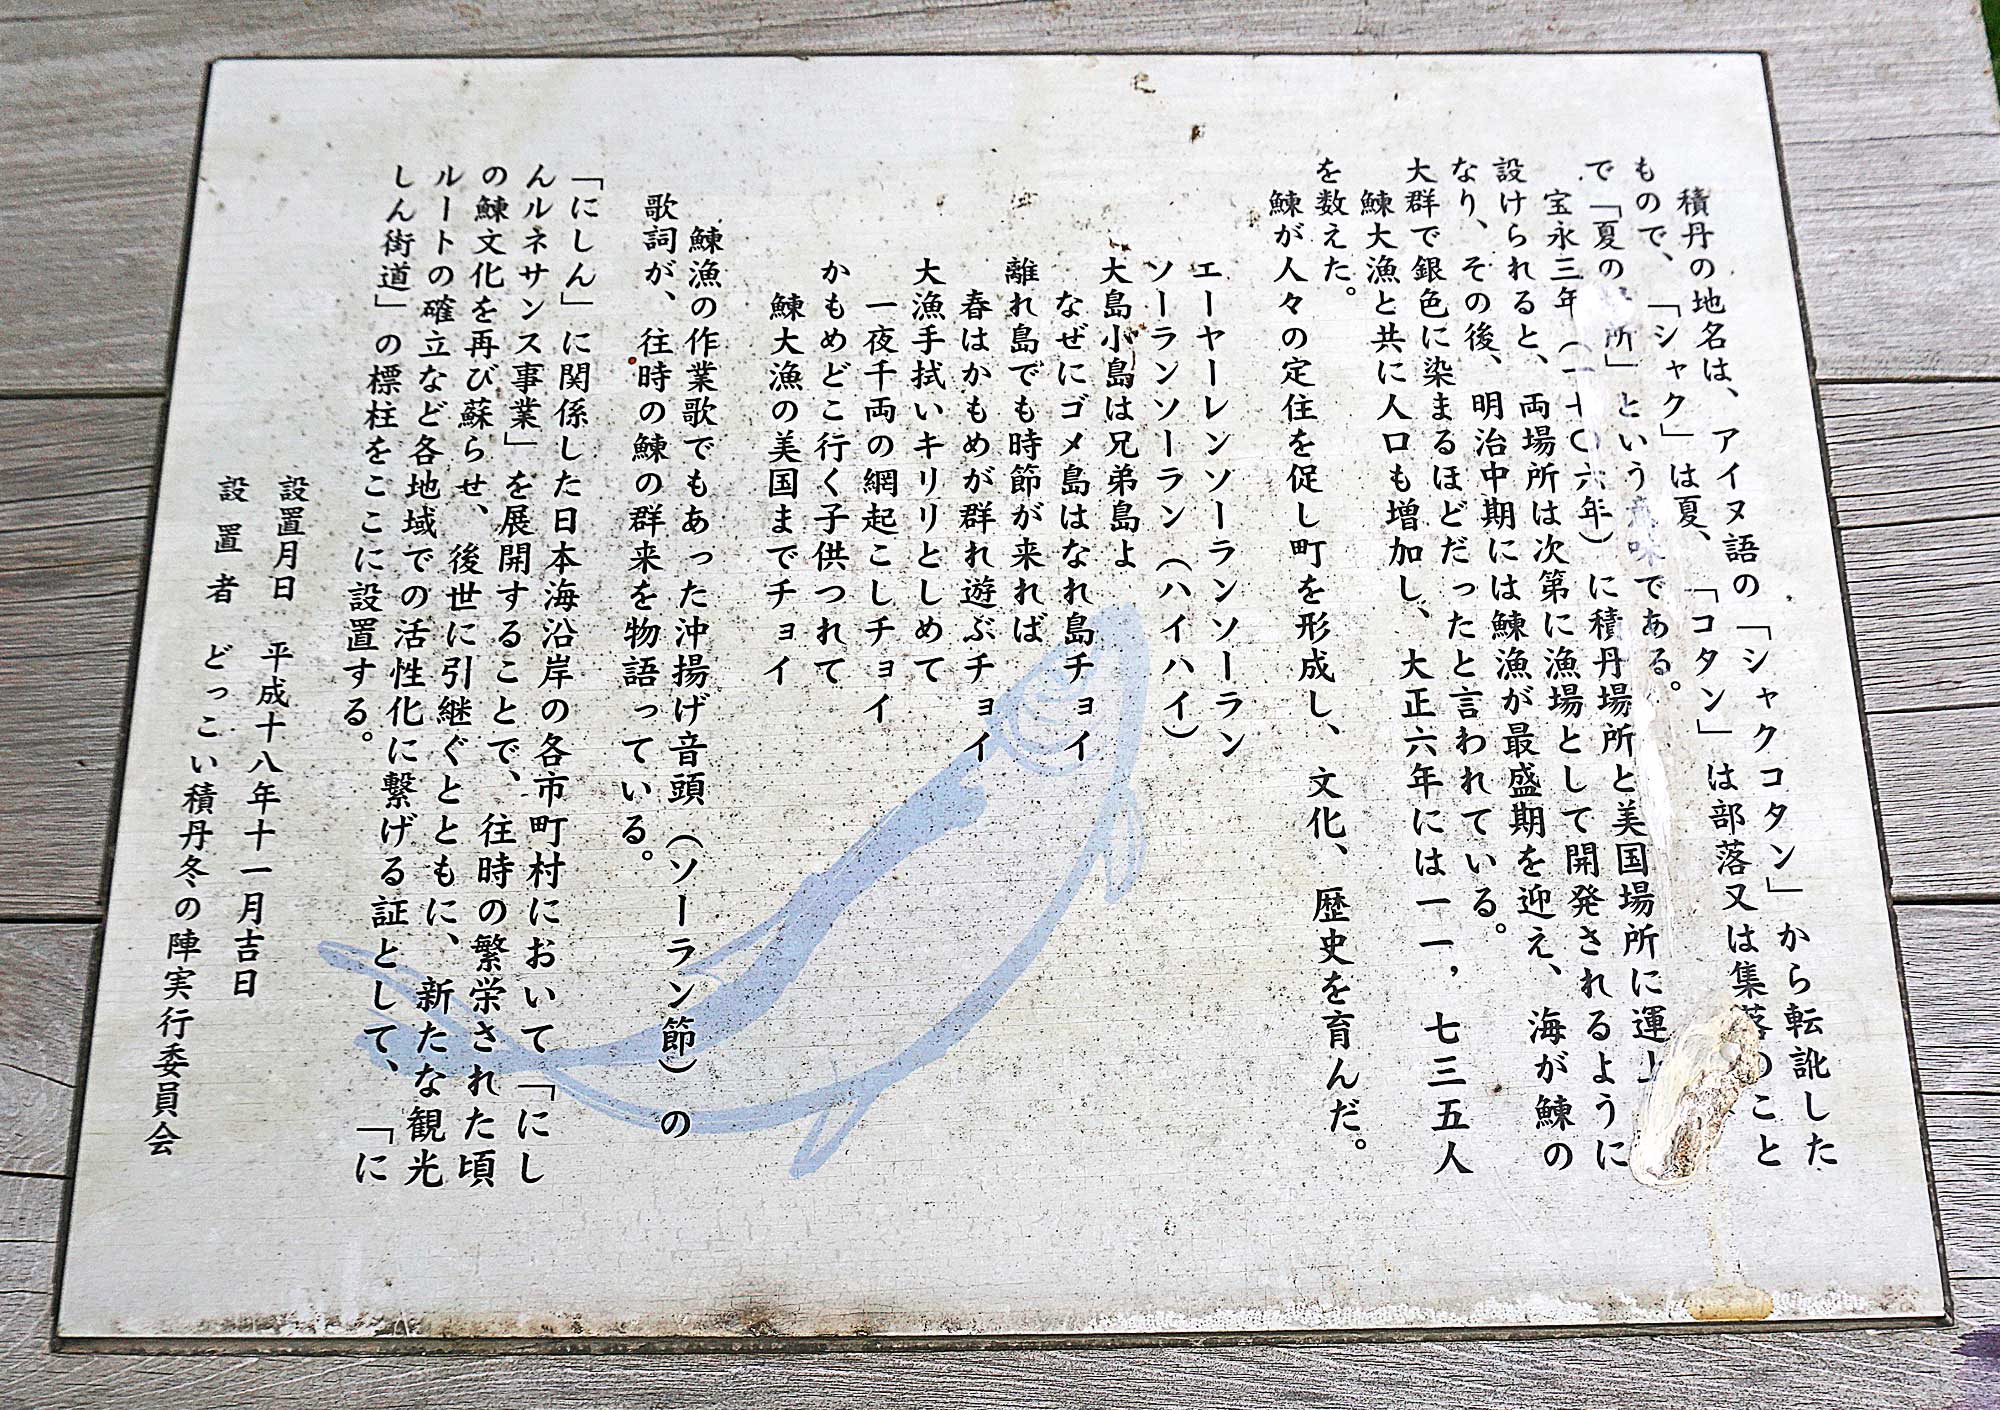 積丹の地名は、アイヌ語の「シャクコタン」から転訛した
もので、「シャク」は夏、「コタン」は部落又は集落のこと
で「夏の場所」という意味である。
宝永三年(一七〇六年)に積丹場所と美国場所に運上
設けられると、両場所は次第に漁場として開発されるように
なり、その後、明治中期には鰊漁が最盛期を迎え、海が鰊の
大群で銀色に染まるほどだったと言われている。
鰊大漁と共に人口も増加し、大正六年には一一,七三五人
を数えた。
鰊が人々の定住を促し町を形成し、文化、歴史を育んだ。
エーヤーレンソーランソーラン
ソーランソーラン(ハイハイ)
大島小島は兄弟島よ
なぜにゴメ島はなれ島チョイ
離れ島でも時節が来れば
春はかもめが群れ遊ぶチョイ
大漁手拭いキリリとしめて
一夜千両の網起こしチョイ
かもめどこ行く子供つれて
鰊大漁の美国までチョイ
鰊漁の作業歌でもあった沖揚げ音頭(ソーラン節)の
歌詞が、往時の鰊の群来を物語っている。
「にしん」に関係した日本海沿岸の各市町村において「にし
んルネサンス事業」を展開することで、往時の繁栄された頃
の鰊文化を再び蘇らせ、後世に引継ぐとともに、新たな観光
ルートの確立など各地域での活性化に繋げる証として、「に
しん街道」の標柱をここに設置する。
設置月日 平成十八年十一月吉日
設置者 どっこい積丹冬の陣実行委員会